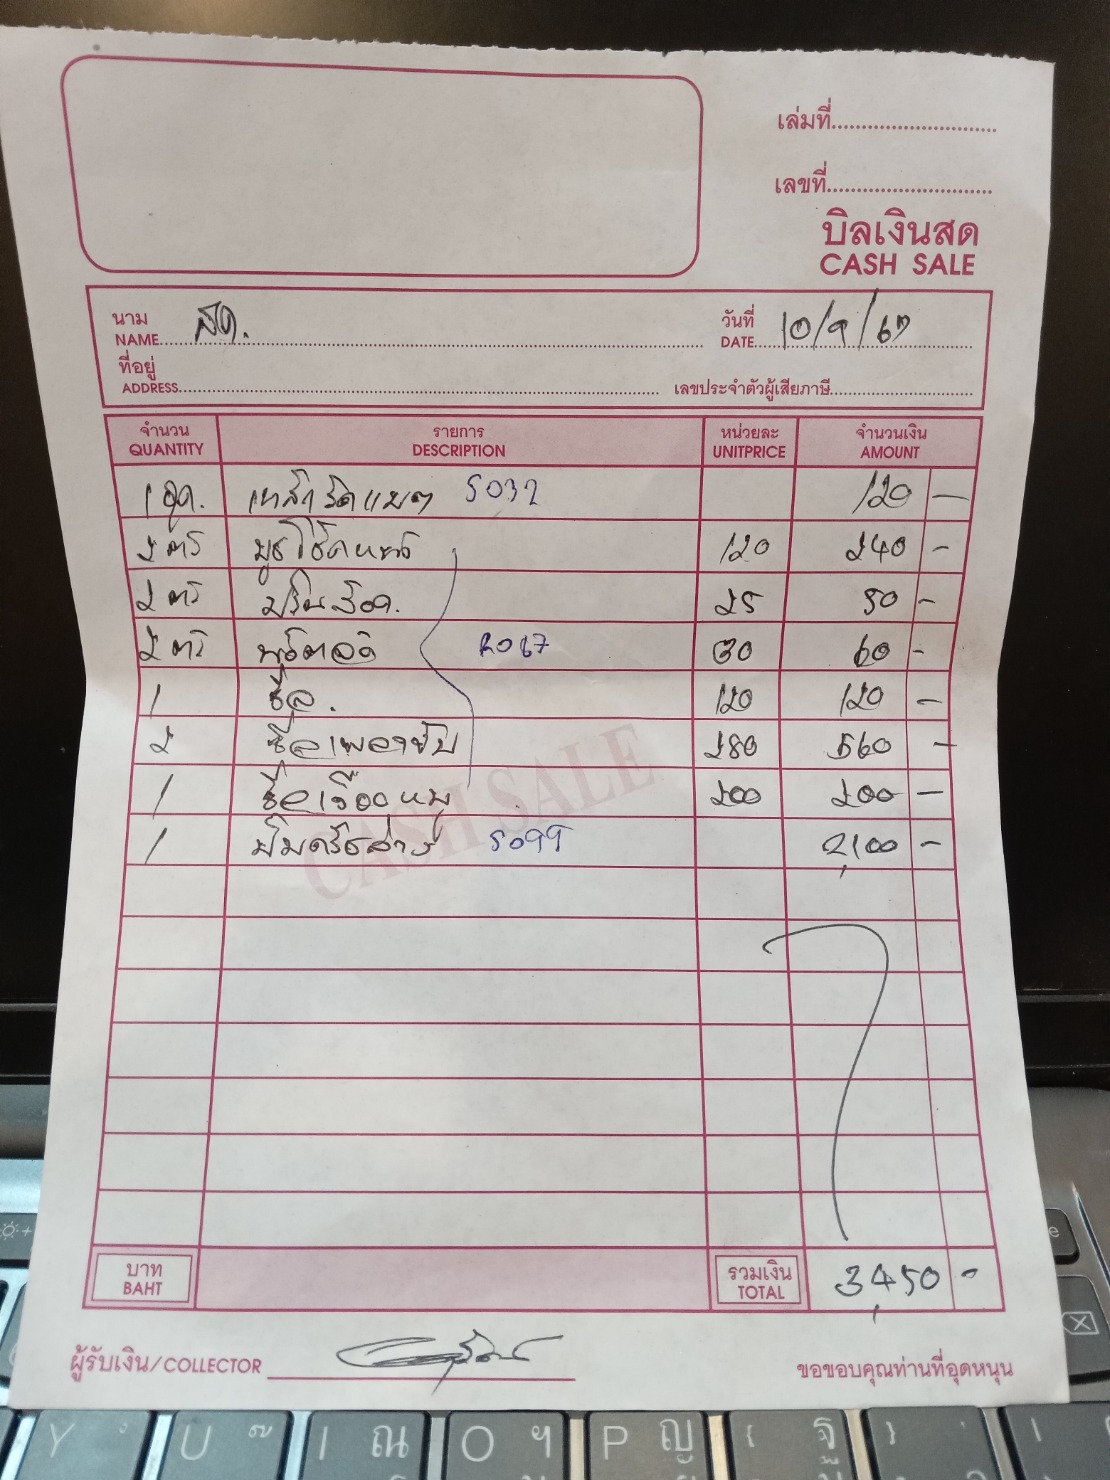 เล่มที่
เลขที่
บิลเงินสด
CASH SALE
นาม
NAME
สด.
วันที่
DATE
10/9/67
ที่อยู่
ADDRESS
เลขประจำตัวผู้เสียภาษี
จำนวน รายการ หน่วยละ จำนวนเงิน
QUANTITY DESCRIPTION UNITPRICE AMOUNT
1 ชุด. เหล็กรัดแบต 5032 120 -
2 ตัว บูชโช๊คหลัง 120 240 -
2 ตัว 25 50 -
2 ตัว 2067 30 60 -
1 ซีล. 120 120 -
2 ซีลเพลาขับ 280 560 -
1 ซีลเรือนหมู 200 200 -
1 ปั๊มครัชล่าง 5099 2,100 -
CASH SALE
บาท
BAHT
รวมเงิน
TOTAL
3,450 -
ผู้รับเงิน/COLLECTOR
ขอขอบคุณท่านที่อุดหนุน
Y U I ณ O ฯ P ญ ฐ